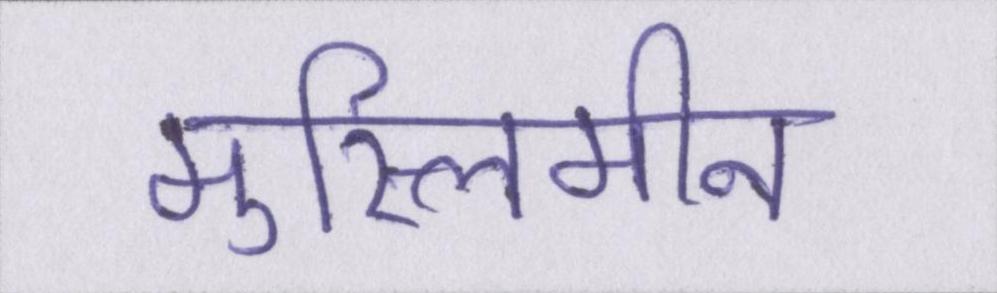 मुस्लिमीन